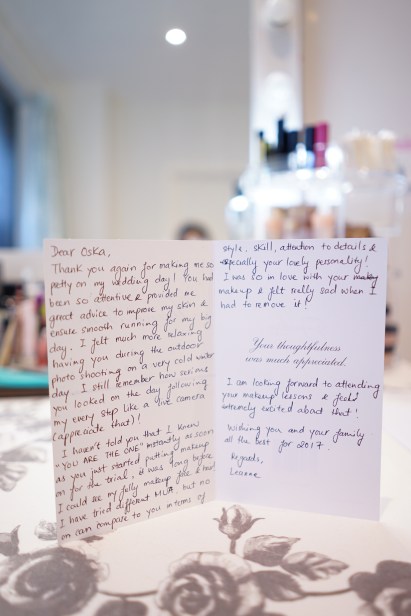 Dear Oska,
Thank you again for making me so
pretty on my wedding day! You had
been so attentive & provided me
great advice to improve my skin &
ensure smooth running for my big
day. I felt much more relaxing
having you during the outdoor
photo shooting on a very cold winter
day. I still remember how serious
you looked on the day following
my every step like a live camera
(appreciate that)!
I haven't told you that I knew
"YOU ARE THE ONE" instantly as soon
as you just started putting makeup
on for the trial, it was long before
I could see my fully makeup face & hair!
I have tried different MUA, but no
on can compare to you in terms of
style, skill, attention to details &
especially your lovely personality!
I was so in love with your
makeup & felt really sad when I
had to remove it!
Your thoughtfulness
was much appreciated.
I am looking forward to attending
your makeup lessons & feel
extremely excited about that!
Wishing you and your family
all the best for 2017.
Regards,
Leanne